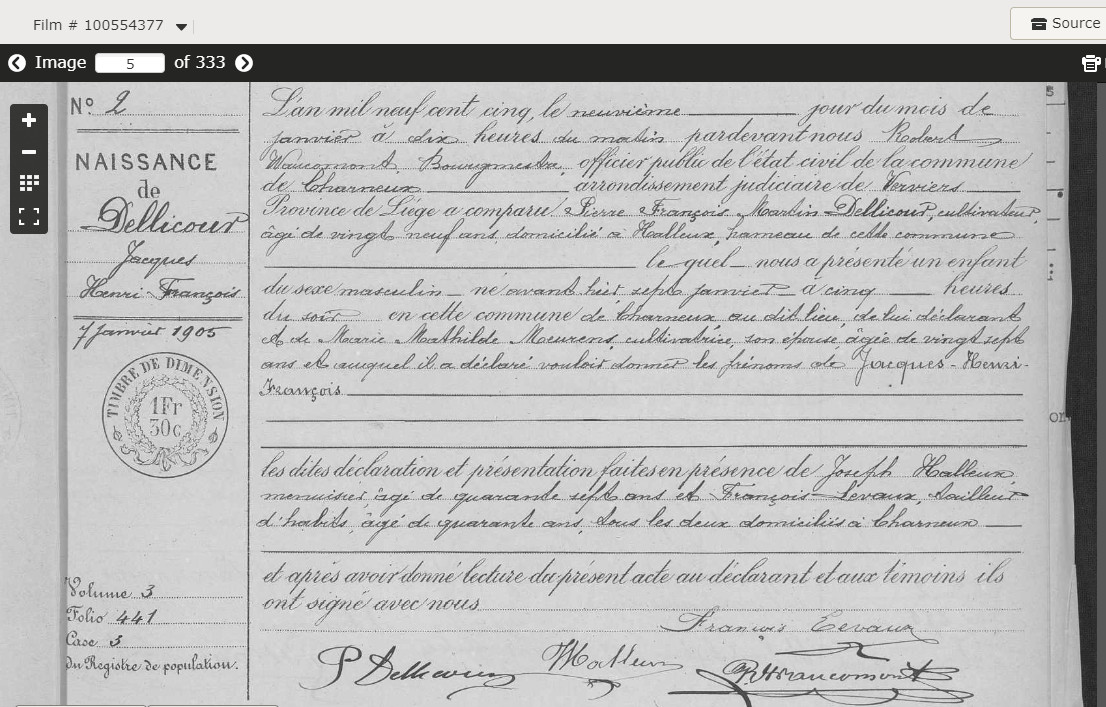 Film # 100554377
Source
Image 5 of 333
N° 2
NAISSANCE
de
Dellicour
Jacques
Henri-François
7 Janvier 1905
TIMBRE DE DIMENSION
1Fr
30c
Volume 3
Folio 441
Case 3
du Registre de population.
L'an mil neuf cent cinq, le neuvième jour du mois de
janvier à dix heures du matin pardevant nous Robert
Waucomont, Bourgmestre, officier public de l'état civil de la commune
de Charneux arrondissement judiciaire de Verviers
Province de Liége a comparu Pierre François Martin Dellicour, cultivateur,
âgé de vingt neuf ans, domicilié à Halleux, hameau de cette commune
le quel nous a présenté un enfant
du sexe masculin né avant hier sept janvier à cinq heures
du soir en cette commune de Charneux au dit lieu, de lui déclarant
et de Marie Mathilde Meurens, cultivatrice, son épouse, âgée de vingt sept
ans et auquel il a déclaré vouloir donner les prénoms de Jacques-Henri-
François
les dites déclaration et présentation faites en présence de Joseph Halleux,
menuisier, âgé de quarante sept ans et François Levaux, tailleur
d'habits, âgé de quarante ans, tous les deux domiciliés à Charneux
et après avoir donné lecture du présent acte au déclarant et aux témoins ils
ont signé avec nous
François Levaux
P Dellicour Halleux R Waucomont
5
on